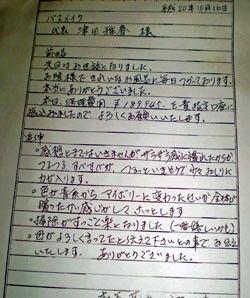 平成20年10月16日
バスメイク
代表 津田 様
前略
先日はお世話になりました。
お陰様できれいなお風呂に毎日つかっております。
本当にありがとうございました。
本日、修理費用 を貴指定口座に
振込みましたのでよろしくお願いいたします。
追伸
・感想とまではいきませんが ザラザラ感に慣れたからか
つるつるすべすべが、 おしりに
力が入ります。
・色が青系からアイボリーに変わったせいか全体が
暖ったかい感じがしてホッとします
・掃除がすっごく楽になりました(一番嬉しいかも)
・ よろしく言ってたと伝えて下さいとの事でお伝え
いたします。 ありがとうございました。